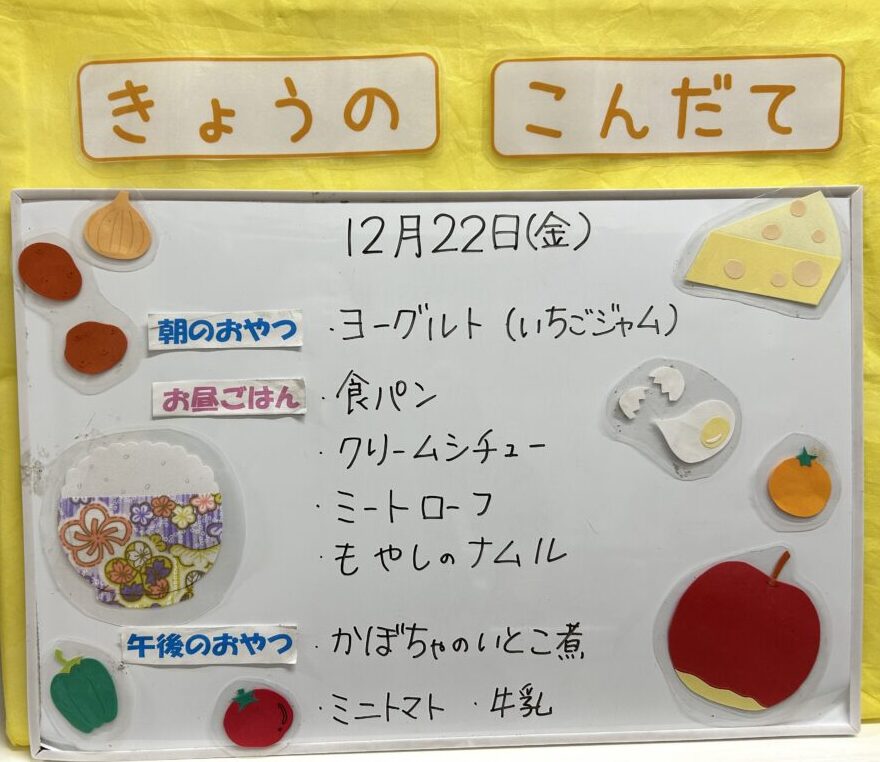 きょうの こんだて
12月22日(金)
朝のおやつ ・ヨーグルト (いちごジャム)
お昼ごはん ・食パン
・クリームシチュー
・ミートローフ
・もやしのナムル
午後のおやつ ・かぼちゃのいとこ煮
・ミニトマト ・牛乳